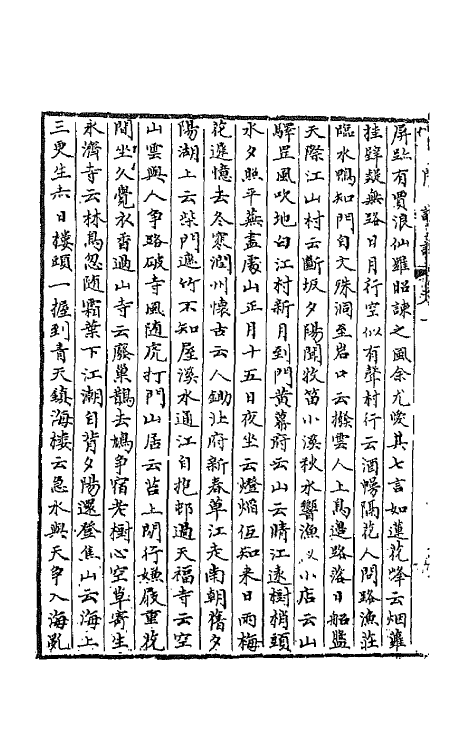 屏迹有賈浪仙雖昭諫之風余尤愛其七言如蓮花峰云烟蘿
挂碎疑無路日月行空似有聲村行云酒幔隔花人問路漁莊
臨水鴨知門自文殊洞至岩口云撥雲人上鳥邊路落日船盤
天際江山村云斷坂夕陽閒牧笛小溪秋水響漁乂小店云山
驛罡風吹地白江村新月到門黃幕府云山云晴江遠樹梢頭
水夕照平蕪盡處山正月十五日夜坐云燈焰伍知来日雨梅
花遲憶去冬寒潤州懷古云人鋤北府新春草江走南朝舊夕
陽湖上云柴門遮竹不知屋溪水通江自抱邨過天福寺云空
山雲與人争路破寺風随虎打門山居云苔上閒行嫌屐重花
間坐久覺衣香過山寺云廢巢鵲去鳩争宿老樹心空草寄生
永濟寺云林鳥忽随霜葉下江潮自背夕陽還登焦山云海上
三更生六日樓頭一握到青天鎮海楼云急水與天争入海亂